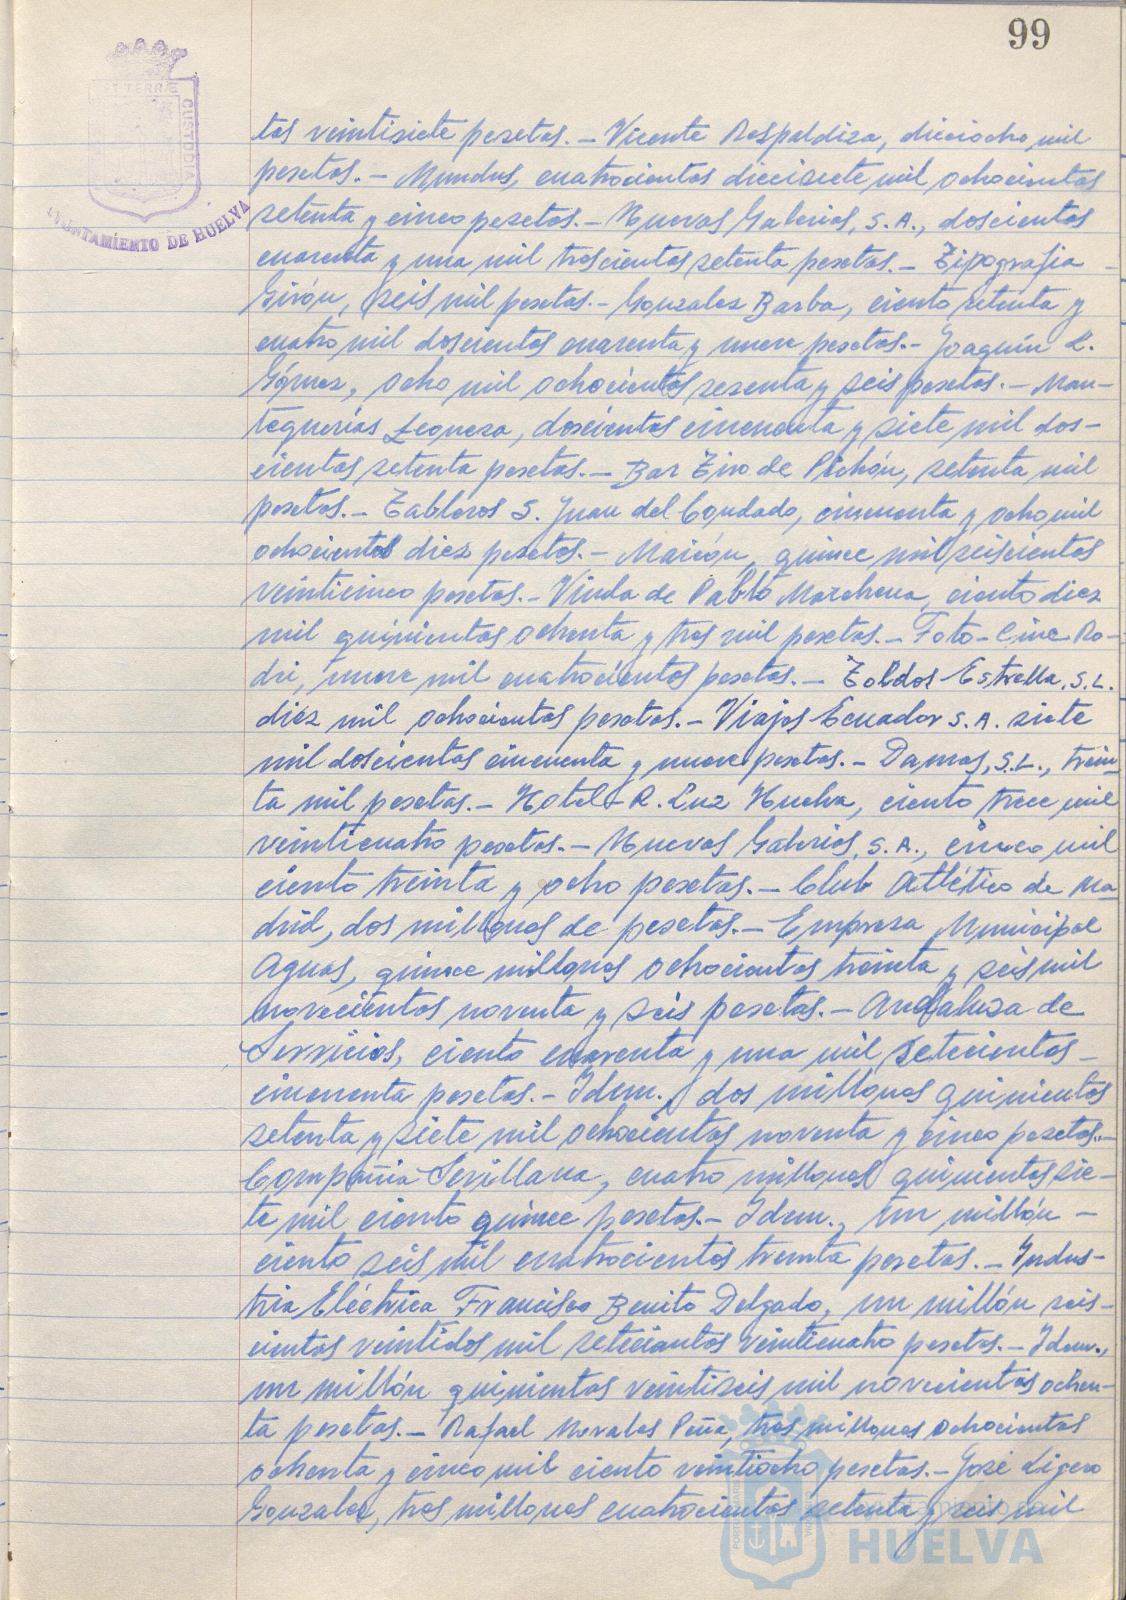 99
ET TERRÆ
CUSTODIA
AYUNTAMIENTO DE HUELVA
tas veintisiete pesetas.- Vicente Respaldiza, dieciocho mil
pesetas.- Mundus, cuatrocientas diecisiete mil ochocientas
setenta y cinco pesetas.- Nuevas Galerias, S.A., doscientas
cuarenta y una mil trescientas setenta pesetas.- Tipografia
Girón, seis mil pesetas.- Gonzalez Barba, ciento setenta y
cuatro mil doscientas cuarenta y nueve pesetas.- Joaquín L.
Gómez, ocho mil ochocientas sesenta y seis pesetas.- Man-
tequerías Lequesa, doscientas cincuenta y siete mil dos-
cientas setenta pesetas.- Bar Tiro de Pichón, setenta mil
pesetas.- Tableros S. Juan del Condado, cincuenta y ocho mil
ochocientas diez pesetas.- Maicón, quince mil seiscientas
veinticinco pesetas.- Viuda de Pablo Marchena, ciento diez
mil quinientas ochenta y tres mil pesetas.- Foto-Cine Ro-
dri, nueve mil cuatrocientas pesetas.- Toldos Estrella, S.L.
diez mil ochocientas pesetas.- Viajes Ecuador S.A. siete
mil doscientas cincuenta y nueve pesetas.- Damas, S.L., trein-
ta mil pesetas.- Hotel R. Luz Huelva, ciento trece mil
veinticuatro pesetas.- Nuevas Galerias, S.A., cinco mil
ciento treinta y ocho pesetas.- Club Atlético de Ma
drid, dos millones de pesetas.- Empresa Municipal
Aguas, quince millones ochocientas treinta y seis mil
novecientas noventa y seis pesetas.- Andaluza de
Servicios, ciento cuarenta y una mil setecientas
cincuenta pesetas.- Idem., dos millones quinientas
setenta y siete mil ochocientas noventa y cinco pesetas.-
Compañia Sevillana, cuatro millones quinientas sie-
te mil ciento quince pesetas.- Idem., un millón -
ciento seis mil cuatrocientas treinta pesetas.- Indus-
tria Eléctrica Francisco Benito Delgado, un millón seis-
cientas veintidos mil setecientas veinticuatro pesetas.- Idem.,
un millón quinientas veintiseis mil novecientas ochen-
ta pesetas.- Rafael Morales Peña, tres millones ochocientas
ochenta y cinco mil ciento veintiocho pesetas.- José Ligero
Gonzalez, tres millones cuatrocientas setenta y seis mil
Ayuntamiento de
HUELVA